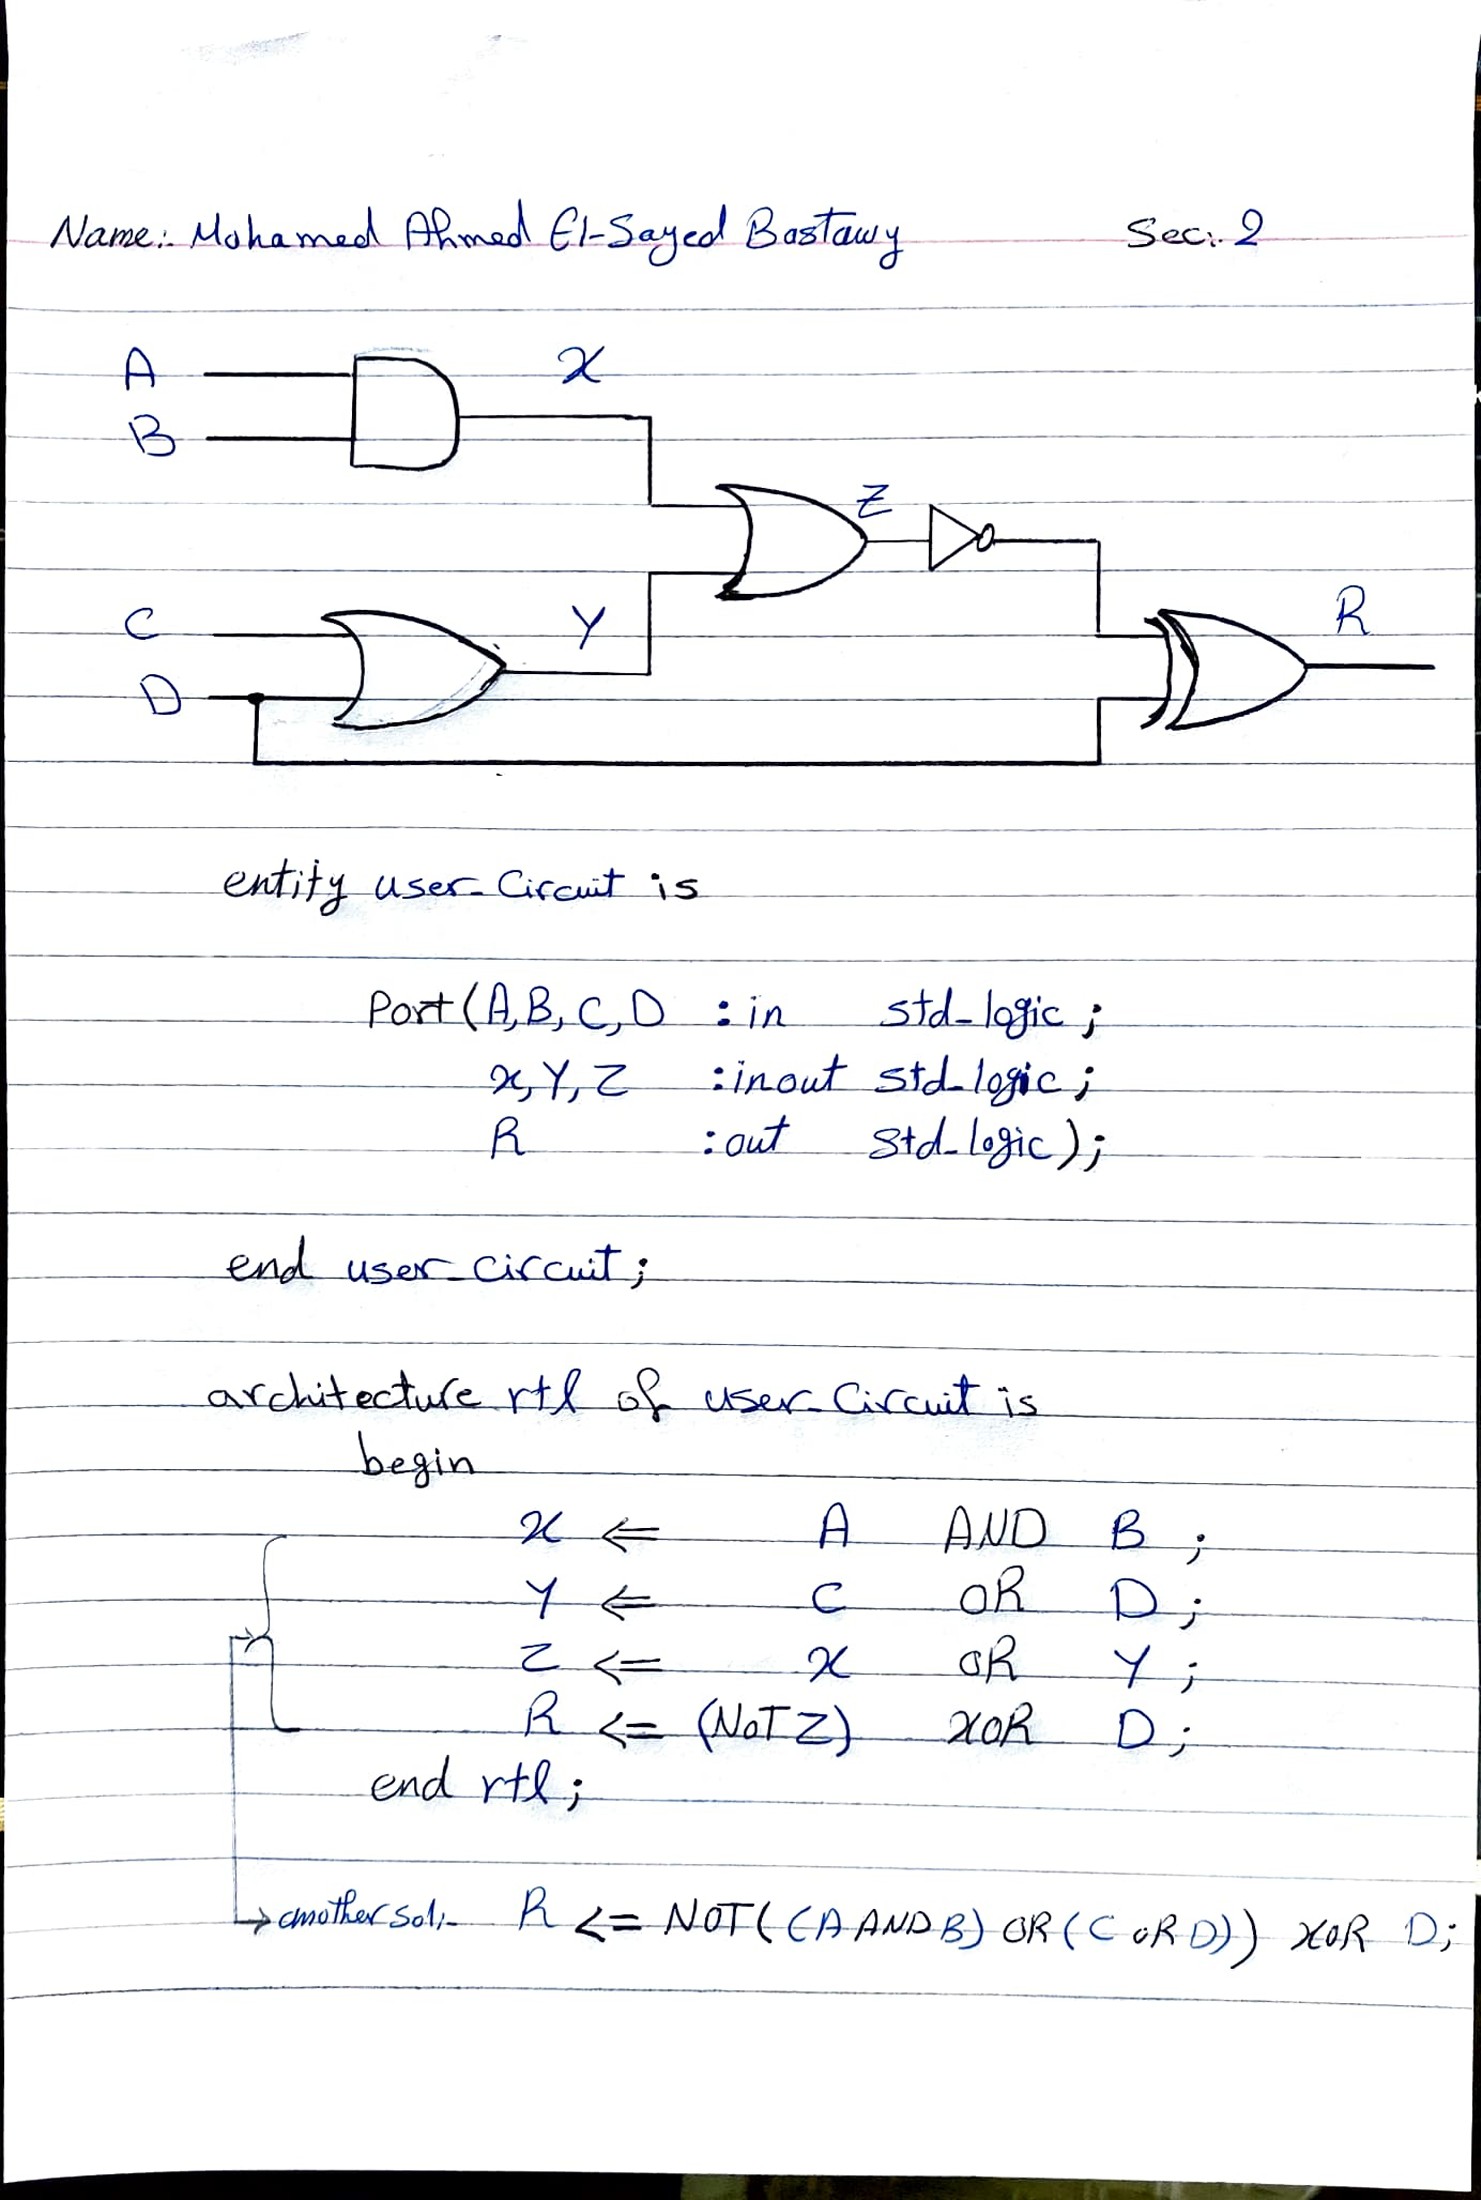 Name:. Mohamed Ahmed El-Sayed Bastawy Sec:. 2
A X
B
Z
C Y R
D
entity user_Circuit is
Port(A,B,C,D : in std_logic ;
x,Y,Z : inout std_logic ;
R : out std_logic );
end user_circuit ;
architecture rtl of user_Circuit is
begin
X <= A AND B ;
Y <= C OR D ;
Z <= X OR Y ;
R <= (NOT Z) XOR D ;
end rtl ;
another sol:- R <= NOT((A AND B) OR (C OR D)) XOR D;